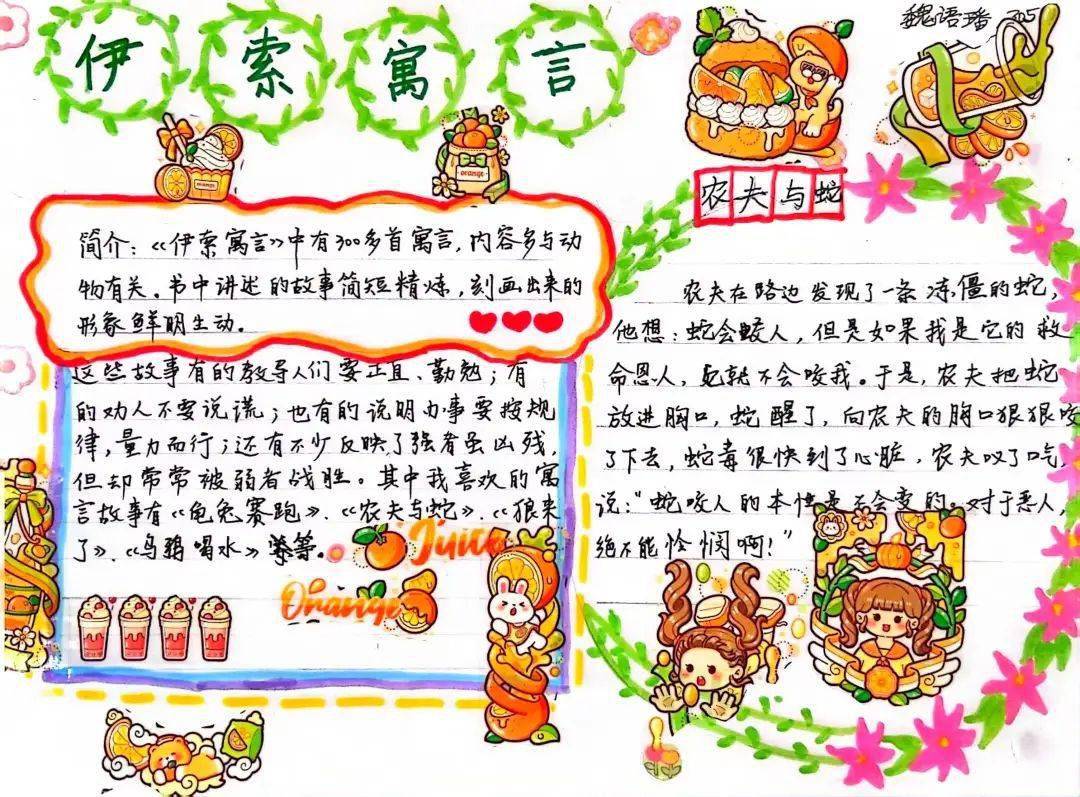 伊索寓言
魏语
orange
农夫与蛇
简介：《伊索寓言》中有300多首寓言，内容多与动
物有关。书中讲述的故事简短精炼，刻画出来的
形象鲜明生动。
这些故事有的教导人们要正直、勤勉；有
的劝人不要说谎；也有的说明办事要按规
律，量力而行；还有不少反映了强者虽凶残，
但却常常被弱者战胜。其中我喜欢的寓
言故事有《龟兔赛跑》、《农夫与蛇》、《狼来
了》、《乌鸦喝水》等等。
Juice
Orange
农夫在路边发现了一条冻僵的蛇，
他想：蛇会咬人，但是如果我是它的救
命恩人，它就不会咬我。于是，农夫把蛇
放进胸口，蛇醒了，向农夫的胸口狠狠咬
了下去，蛇毒很快到了心脏，农夫叹了口气，
说：“蛇咬人的本性是不会变的。对于恶人，
绝不能怜悯啊！”